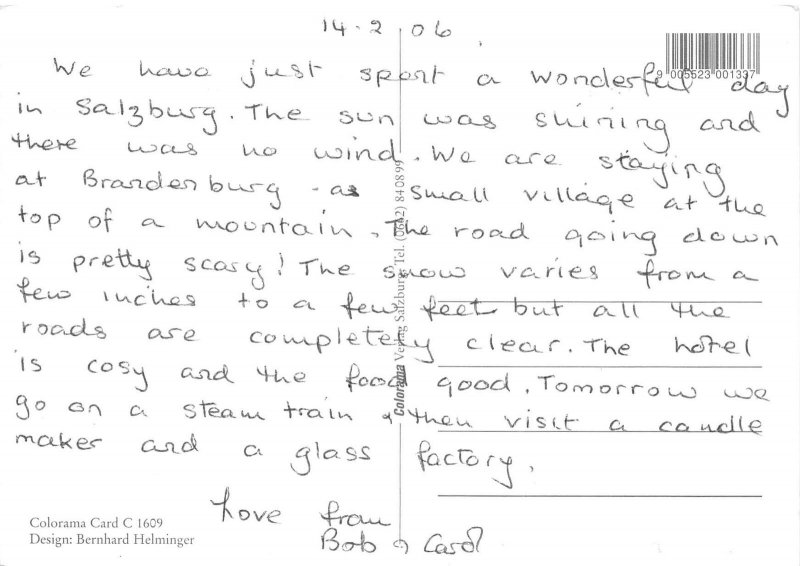 14.2.06
We have just spent a wonderful day
in Salzburg. The sun was shining and
there was no wind. We are staying
at Brandenburg - a small village at the
top of a mountain. The road going down
is pretty scary! The snow varies from a
few inches to a few feet but all the
roads are completely clear. The hotel
is cosy and the food good. Tomorrow we
go on a steam train & then visit a candle
maker and a glass factory.
Love from
Bob & Carol
9 005523 001337
Colorama Verlag Salzburg, Tel. (0662) 840899
Colorama Card C 1609
Design: Bernhard Helminger